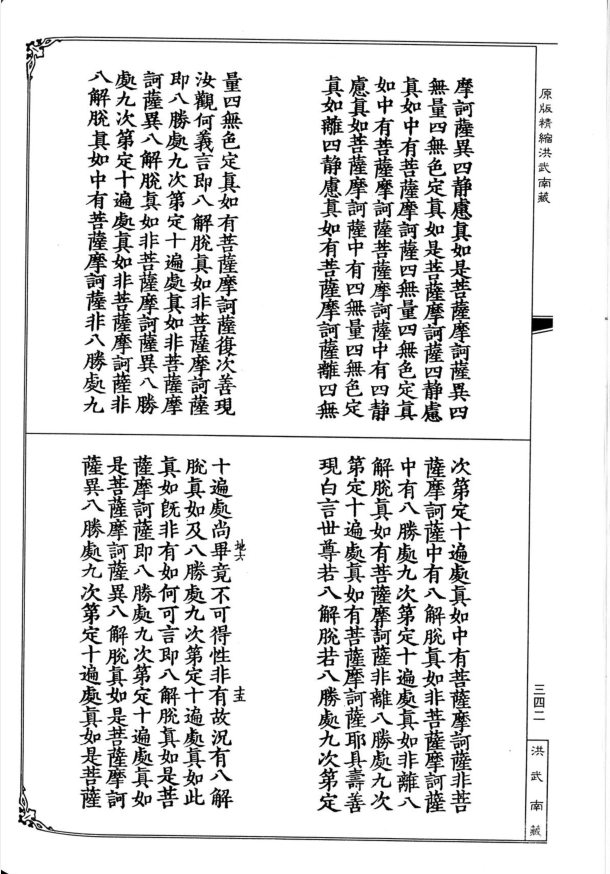 原版精縮洪武南藏
摩訶薩異四靜慮真如是菩薩摩訶薩異四
無量四無色定真如是菩薩摩訶薩四靜慮
真如中有菩薩摩訶薩四無量四無色定真
如中有菩薩摩訶薩菩薩摩訶薩中有四靜
慮真如菩薩摩訶薩中有四無量四無色定
真如離四靜慮真如有菩薩摩訶薩離四無
量四無色定真如有菩薩摩訶薩復次善現
汝觀何義言即八解脫真如非菩薩摩訶薩
即八勝處九次第定十遍處真如非菩薩摩
訶薩異八解脫真如非菩薩摩訶薩異八勝
處九次第定十遍處真如非菩薩摩訶薩非
八解脫真如中有菩薩摩訶薩非八勝處九
次第定十遍處真如中有菩薩摩訶薩非菩
薩摩訶薩中有八解脫真如非菩薩摩訶薩
中有八勝處九次第定十遍處真如非離八
解脫真如有菩薩摩訶薩非離八勝處九次
第定十遍處真如有菩薩摩訶薩耶具壽善
現白言世尊若八解脫若八勝處九次第定
地六
十遍處尚畢竟不可得性非有故況有八解
脫真如及八勝處九次第定十遍處真如此
真如既非有如何可言即八解脫真如是菩
薩摩訶薩即八勝處九次第定十遍處真如
是菩薩摩訶薩異八解脫真如是菩薩摩訶
薩異八勝處九次第定十遍處真如是菩薩
三四二
洪武南藏